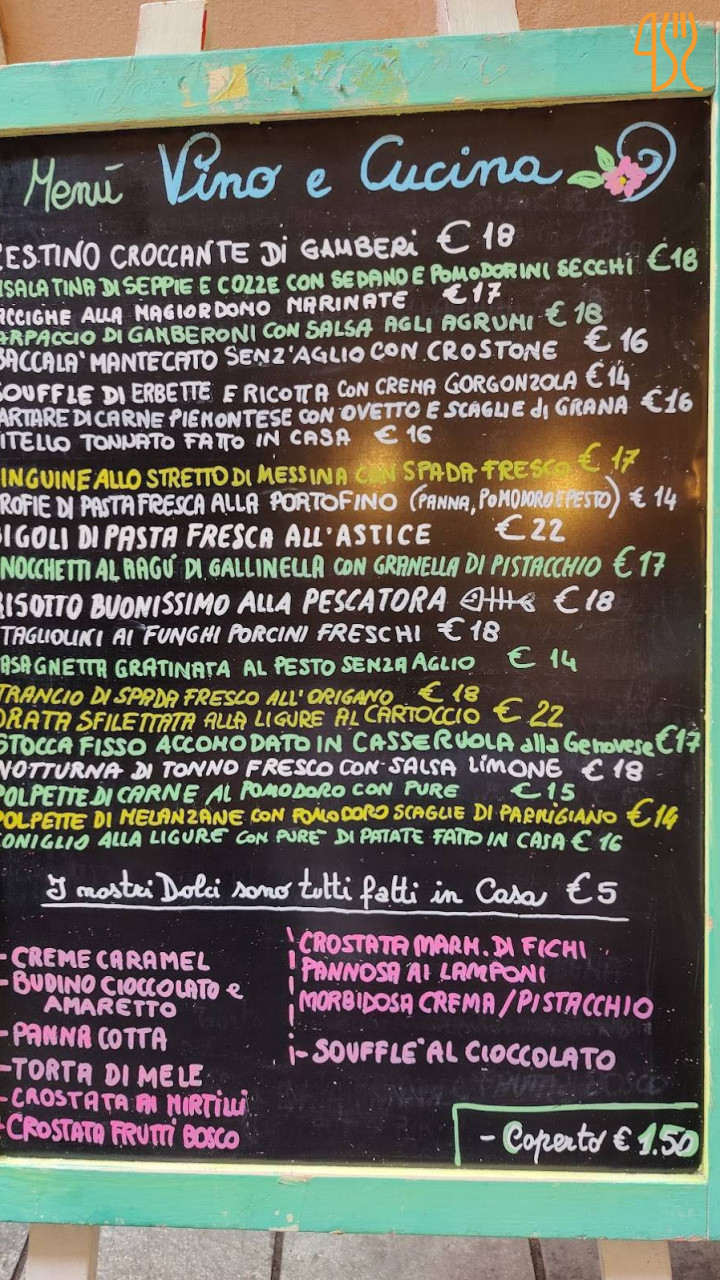 Menú Vino e Cucina
CESTINO CROCCANTE Di GAMBERi € 18
NSALATINA DI SEPPIE E COZZE CON SEDANO E POMODORINI SECCHI €18
ACCIGHE ALLA MAGIORDOMO MARINATE €17
ARPACCIO DI GAMBERONI CON SALSA AGLI AGRUMI € 18
BACCALA' MANTECATO SENZ'AGLIO CON CROSTONE € 16
SOUFFLE DI ERBETTE E RICOTTA CON CREMA GORGONZOLA €14
ARTARE DI CARNE PIEMONTESE CON OVETTO E SCAGLIE di GRANA €16
ITELLO TONNATO FATTO IN CASA € 16
INGUINE ALLO STRETTO DI MESSINA CON SPADA FRESCO € 17
ROFIE DI PASTA FRESCA ALLA PORTOFINO (PANNA, POMODORO E PESTO) € 14
BIGOLI DI PASTA FRESCA ALL'ASTICE €22
NOCCHETTI AL RAGÚ DI GALLINELLA CON GRANELLA DI PISTACCHIO €17
RISOTTO BUONISSIMO ALLA PESCATORA €18
TAGLIOLINI AI FUNGHI PORCINI FRESCHI €18
ASAGNETTA GRATINATA AL PESTO SENZA AGLIO € 14
TRANCIO DI SPADA FRESCO ALL'ORIGANO € 18
ORATA SFILETTATA ALLA LIGURE AL CARTOCCIO € 22
STOCCAFISSO ACCOMODATO IN CASSERUOLA alla Genovese €17
NOTTURNA DI TONNO FRESCO CON SALSA LIMONE € 18
POLPETTE DI CARNE AL POMODORO CON PURE €15
POLPETTE DI MELANZANE CON POMODORO SCAGLIE DI PARMIGIANO €14
CONIGLIO ALLA LIGURE CON PURE' DI PATATE FATTO IN CASA € 16
I nostri Dolci sono tutti fatti in Casa €5
- CREME CARAMEL
- BUDINO CIOCCOLATO e
AMARETTO
- PANNA COTTA
- TORTA DI MELE
- CROSTATA AI MIRTILLI
- CROSTATA FRUTTI BOSCO
CROSTATA MARM. DI FICHI
PANNOSA AI LAMPONI
MORBIDOSA CREMA/PISTACCHIO
- SOUFFLE' AL CIOCCOLATO
- Coperto € 1.50